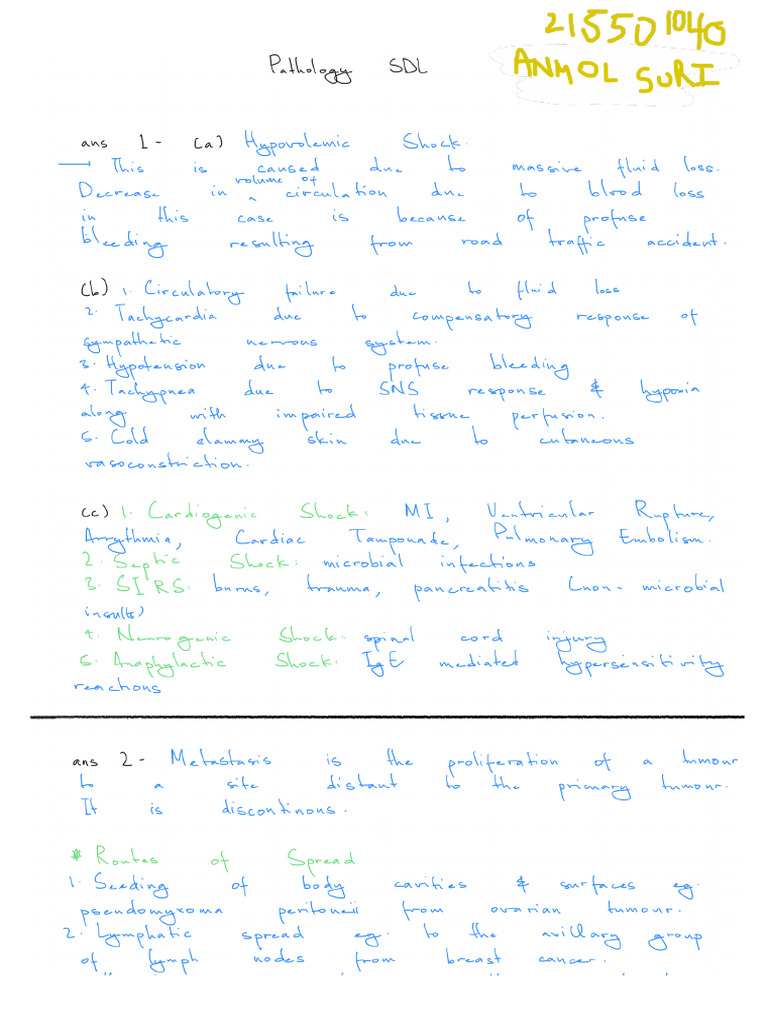 21550 1040
Pathology SDL
ANMOL SURI
ans 1- (a) Hypovolemic Shock.
→ This is caused due to massive fluid loss.
Decrease in volume of circulation due to blood loss
in this case is because of profuse
bleeding resulting from road traffic accident.
(b) 1. Circulatory failure due to fluid loss
2. Tachycardia due to compensatory response of
sympathetic nervous system.
3. Hypotension due to profuse bleeding
4. Tachypnea due to SNS response & hypoxia
along with impaired tissue perfusion.
5. Cold clammy skin due to cutaneous
vasoconstriction.
(c) 1. Cardiogenic Shock: MI, Ventricular Rupture,
Arrythmia, Cardiac Tamponade, Pulmonary Embolism.
2. Septic Shock: microbial infections
3. SIRS: burns, trauma, pancreatitis (non-microbial
insults)
4. Neurogenic Shock: spinal cord injury
5. Anaphylactic Shock: IgE mediated hypersensitivity
reactions
ans 2- Metastasis is the proliferation of a tumour
to a site distant to the primary tumour.
It is discontinous.
* Routes of Spread
1. Seeding of body cavities & surfaces eg.
pseudomyxoma peritoneii from ovarian tumour.
2. Lymphatic spread eg. to the axillary group
of lymph nodes from breast cancer.